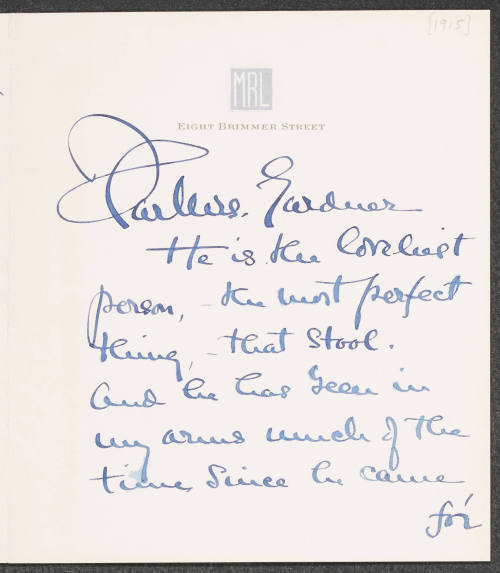 [1915]
MRL
EIGHT BRIMMER STREET
Dear Mrs. Gardner
He is the loveliest
person, – the most perfect
thing, – that stool.
And he has been in
my arms much of the
time since he came
for